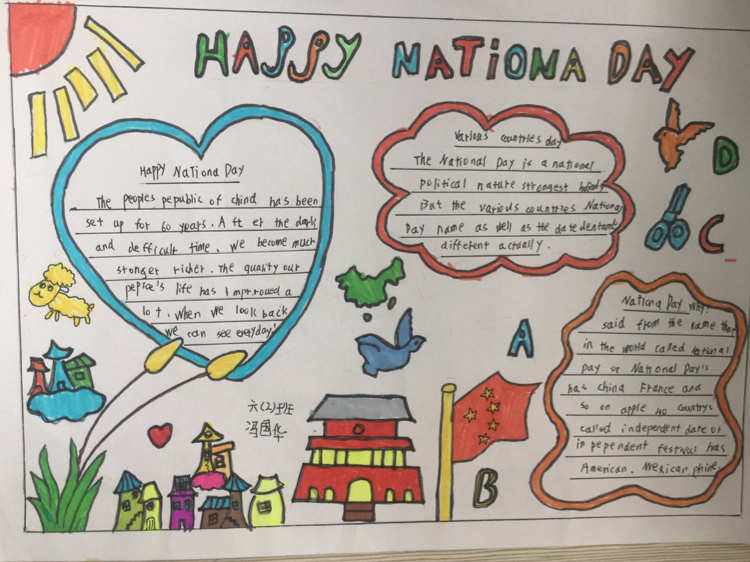 HAPPY NATIONA DAY
Happy Nationa Day
The peoples pepublic of china has been
set up for 60 years. Aft er the dark
and defficult time, we become much
stronger richer. The quality our
peplce's life has improued a
lot. When we look back
we can see everyday!
Various countries day
The National Day is a national
political nature strongest holiday
But the various countries National
Day name as well as the date
different actually.
Nationa Day why:
said from the name then
in the world called national
Day or National Day's
has china France and
so on apple 40 countrys
called independent date or
in pependent festiual has
American. Mexican
D
C
A
B
六(2)班
冯国华